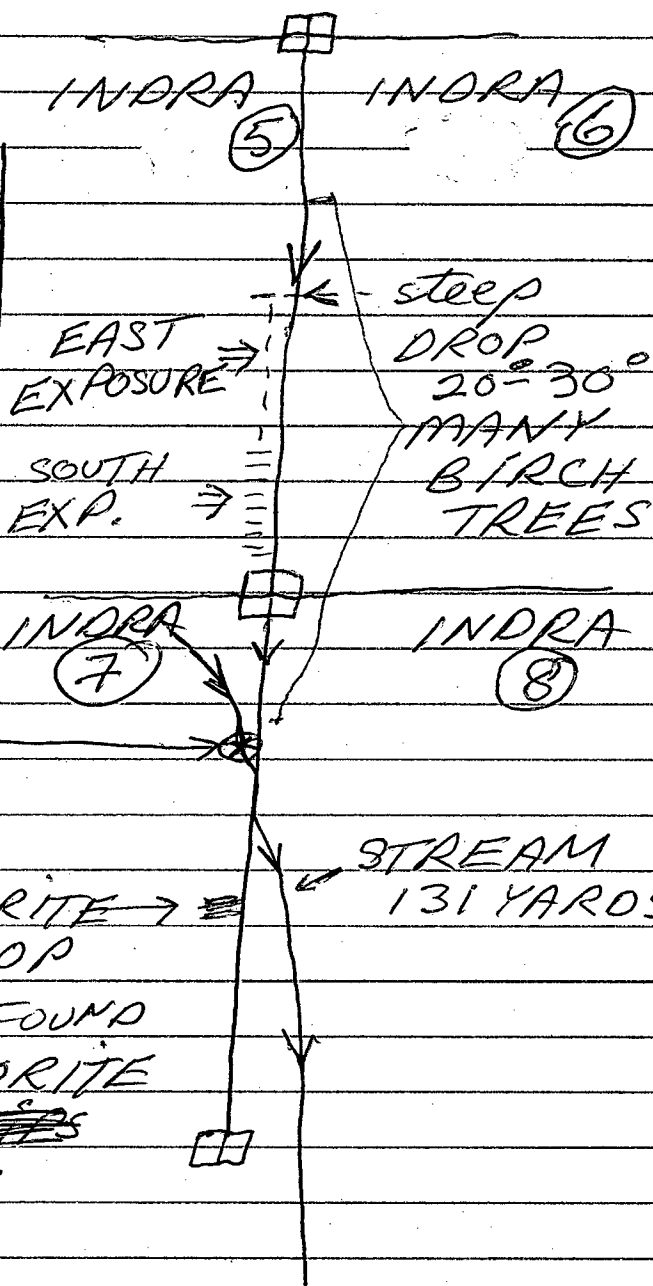 INDRA INDRA
5 6
steep
DROP
20°-30°
EAST
EXPOSURE
MANY
BIRCH
TREES
SOUTH
EXP.
INDRA INDRA
7 8
STREAM
131 YARDS
RITE
OP
FOUND
ORITE